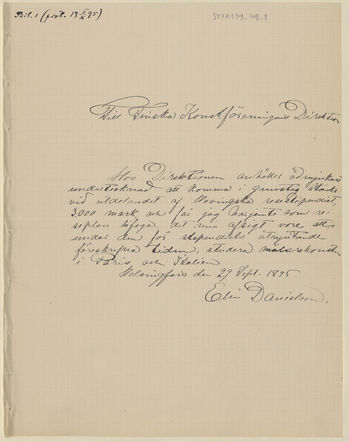 Bil. 1 (prot. 18 5/X 95)
STYAC19_49_1
Till Finska Konstföreningens Direktion
Hos Direktionen anhåller ödmjukast
undertecknad att komma i gunstig åtanke
vid utdelandet af Hovingska resestipendiet
3,000 mark, och får jag härjemte som re-
seplan bifoga det min afsigt vore att
under den för stipendiets åtnjutande
föreskrifna tiden, studera målarekonst
i Paris och Italien
Helsingfors den 29 Sept. 1895.
Elin Danielson.